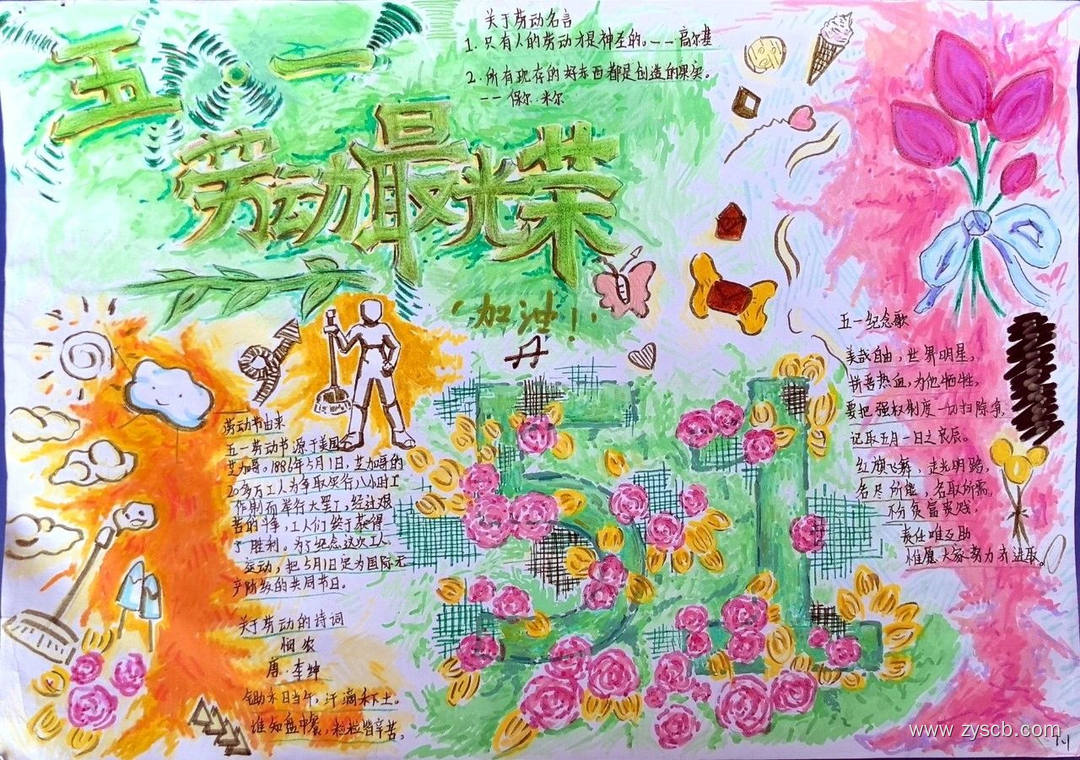 五一
劳动最光荣
关于劳动名言
1. 只有人的劳动才是神圣的。——高尔基
2. 所有现存的好东西都是创造的果实。
——保尔·米尔
加油!
劳动节由来
五一劳动节源于美国
芝加哥。1886年5月1日,芝加哥的
20多万工人为争取实行八小时工
作制而举行大罢工,经过艰
苦的斗争,工人们终于获得
了胜利。为了纪念这次工人
运动,把5月1日定为国际无
产阶级的共同节日。
关于劳动的诗词
悯农
唐·李绅
锄禾日当午,汗滴禾下土。
谁知盘中餐,粒粒皆辛苦。
51
五一纪念歌
美哉自由,世界明星,
拼吾热血,为他牺牲,
要把强权制度一切扫除净,
记取五月一日之良辰。
红旗飞舞,走光明路,
各尽所能,各取所需,
不分贫富贵贱,
责任唯互助
惟愿大家努力齐进取。
www.zyscb.com